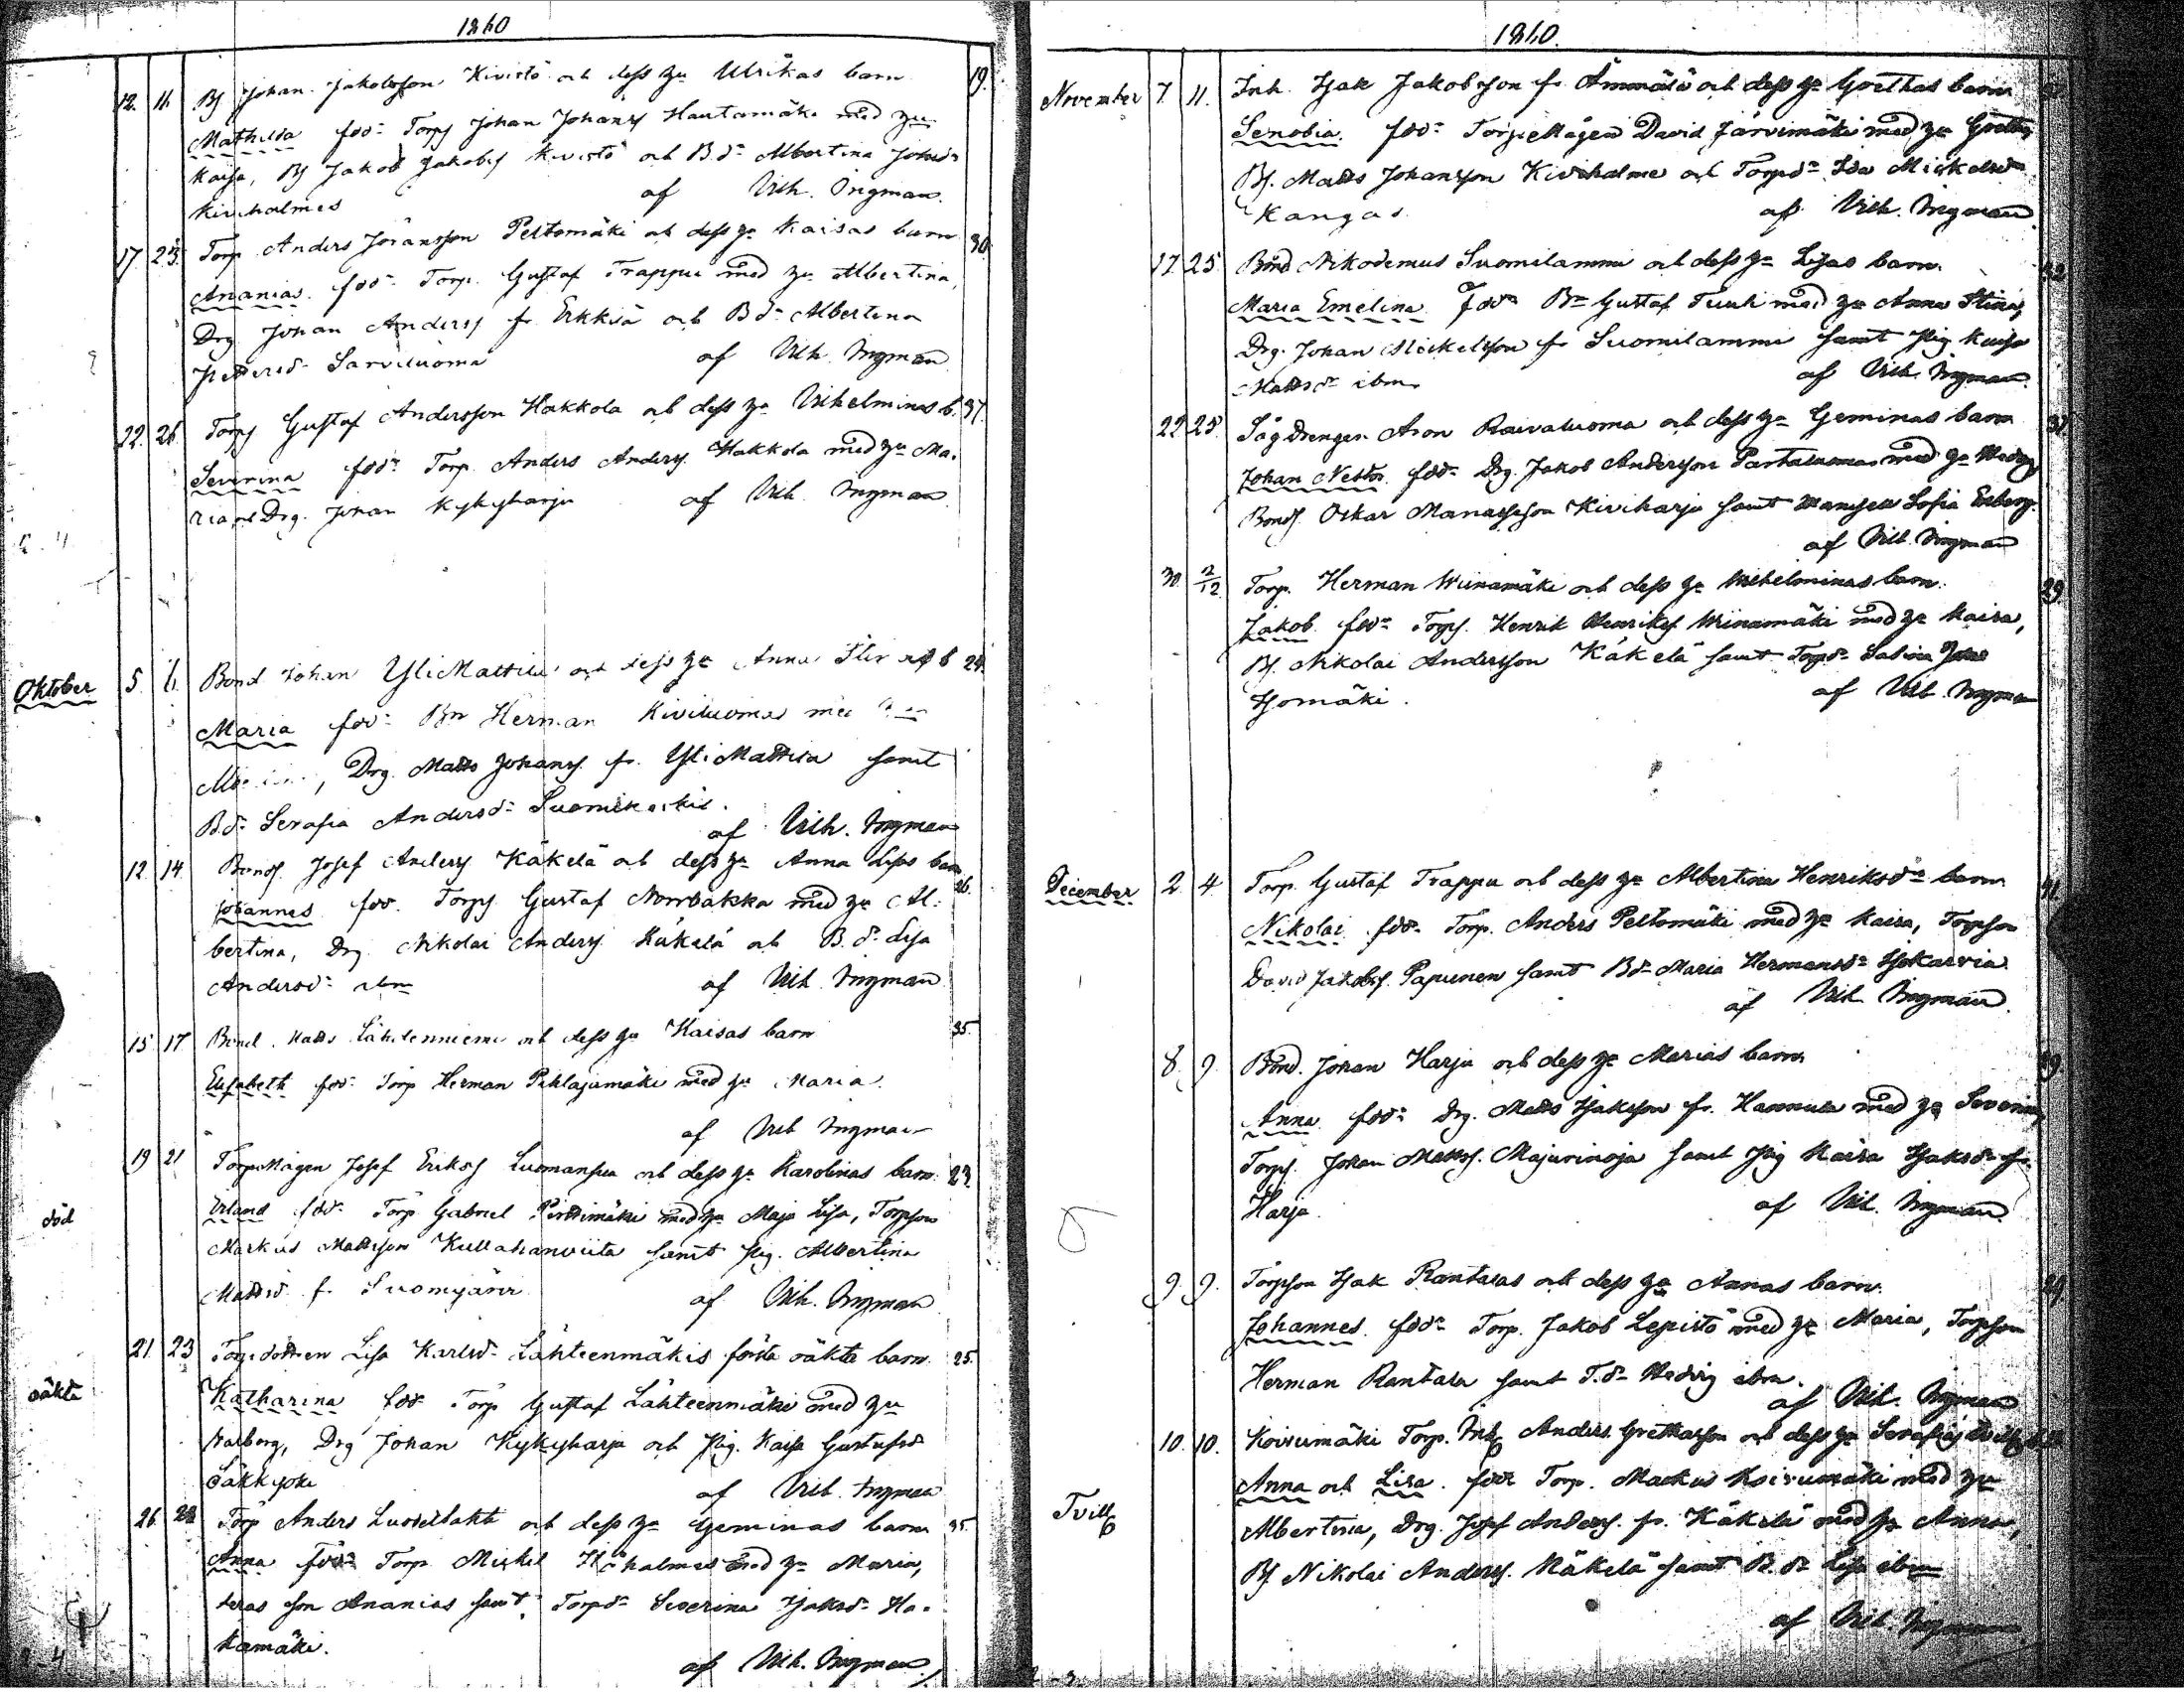 1860
12. 11. Bs Johan Jakobsson Kivistö och dess hu Ulrikas barn 19.
Mathilda fdr Torps Johan Johans Hautamäki med hu
Kaisa, Bs Jakob Jakobs Kivistö och B.dr Albertina Johsdr
Kiviholmes af Vilh. Ingman.
17. 23. Torp Anders Johansson Peltomäki och dess hu Kaisas barn 30.
Ananias. fdr Torp. Gustaf Trappu med hu Albertina,
Drg Johan Anders fr Erkkiä och B.dr Albertina
Sarviluoma af Vilh. Ingman
22. 26. Torps Gustaf Andersson Hakkola och dess hu Vilhelminas b. 37.
Severina fdr Torp. Anders Anders Hakkola med hu Ma-
ria och Drg. Johan Kykyharju af Vilh. Ingman
Oktober 5. 6. Bond Johan YliMattila och dess hu Anna b 24.
Maria fdr Bn Herman Kiviluoma med
Drg. Matts Johans fr. YliMattila samt
B.dr Serafia Andersdr
af Vilh. Ingman
12. 14. Bonds Josef Anders Käkelä och dess hu Anna Lisas barn
Johannes fdr. Torps Gustaf Norrbakka med hu Al- 26.
bertina, Drg Nikolai Anders Käkelä och B.dr Lisa
Andersdr ibm af Vilh Ingman
15 17 Bond. Matts Lähdenniemi och dess hu Kaisas barn 35.
Elisabeth fdr Torp Herman Pihlajamäki med hu Maria.
af Vilh Ingman
19 21 Torpmågen Josef Eriks Luomanpää och dess hu Karolinas barn. 23.
död Erland fdr Torp Gabriel med hu Maja Lisa, Torpson
Markus Mattsson Kullahanviita samt Pig. Albertina
Mattsd. f. Suomijärvi af Vilh. Ingman
21. 23 Torpdottren Lisa Karlsdr Lähteenmäkis första oäkta barn. 25.
oäkta Katharina fdr Torp Gustaf Lähteenmäki med hu
Walborg, Drg Johan Kykyharju och Pig. Kaisa Gustafsdr
Säkkijoki af Vilh. Ingman
26. 28 Torp Anders Luodelahti och dess hu Geminas barn 35.
Anna fdr Torp Mickel med hu Maria,
deras son Ananias samt Torpdr Severina Isaksdr Ha-
kamäki.
af Vilh. Ingman
1860.
November 7. 11. Inh. Isak Jakobsson fr Ämmälä och dess hu Grethas barn
Senobia. fdr Torpmågen David Järvimäki med hu Gretha,
Bs. Matts Johansson Kiviholme och Torpdr Ida Mickelsdr
Kangas. af Vilh. Ingman
17. 25. Bond Nikodemus Suomilammi och dess hu Lisas barn.
Maria Emelina fdr Bn Gustaf Tuuli med hu Anna Stina,
Drg. Johan Mickelsson fr Suomilammi samt Pig Kaisa
Mattsdr ibm af Vilh. Ingman
22 25. Sågdrengen Aron Raivaluoma och dess hu Geminas barn 37.
Johan Nestor. fdr Drg. Jakob Andersson Partaluoma med hu Hedvig
Bonds. Oskar Manasseson Kiviharju samt Mamsell Sofia
af Vilh. Ingman
30. 2/12. Torp. Herman Wiinamäki och dess hu Wilhelminas barn. 29.
Jakob fdr Torps. Henrik Henriks Wiinamäki med hu Kaisa,
Bs. Nikolai Andersson Käkelä samt Torpdr Sabina
Isomäki. af Vilh. Ingman
December 2. 4. Torp. Gustaf Trappu och dess hu Albertina Henriksdr barn 41.
Nikolai fdr Torp. Anders Peltomäki med hu Kaisa, Torpson
David Jakobs. Papunen samt B.dr Maria Hermansdr Isokarvia
af Vilh Ingman.
8. 9. Bond. Johan Harju och dess hu Marias barn
Anna fdr Drg. Matts Isaksson fr. Hannula med hu Severina,
Torps. Johan Matts. Majurinoja samt Pig Kaisa Isaksdr fr
Harju. af Vilh. Ingman
9. 9. Torpson Isak Rantalas och dess hu Annas barn.
Johannes. fdr Torp. Jakob Lepistö med hu Maria, Torpson
Herman Rantala samt T.dr Hedvig ibm.
af Vilh. Ingman
10. 10. Koivumäki Torp. Inh Anders Grettasson och dess hu Serafias
Tvill Anna och Lisa. fdr Torp. Markus Koivumäki med hu
Albertina, Drg. Josef Anders. fr. Käkelä med hu Anna,
Bs. Nikolai Anders. Käkelä samt B.dr Lisa ibm
af Vilh. Ingman